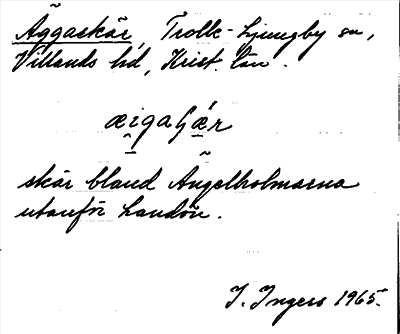 Äggaskär, Trolle-Ljungby sn,
Villands hd, Krist. län.
æigaʃǽr
skär bland Ängelholmarna
utanför Landön.
I. Ingers 1965